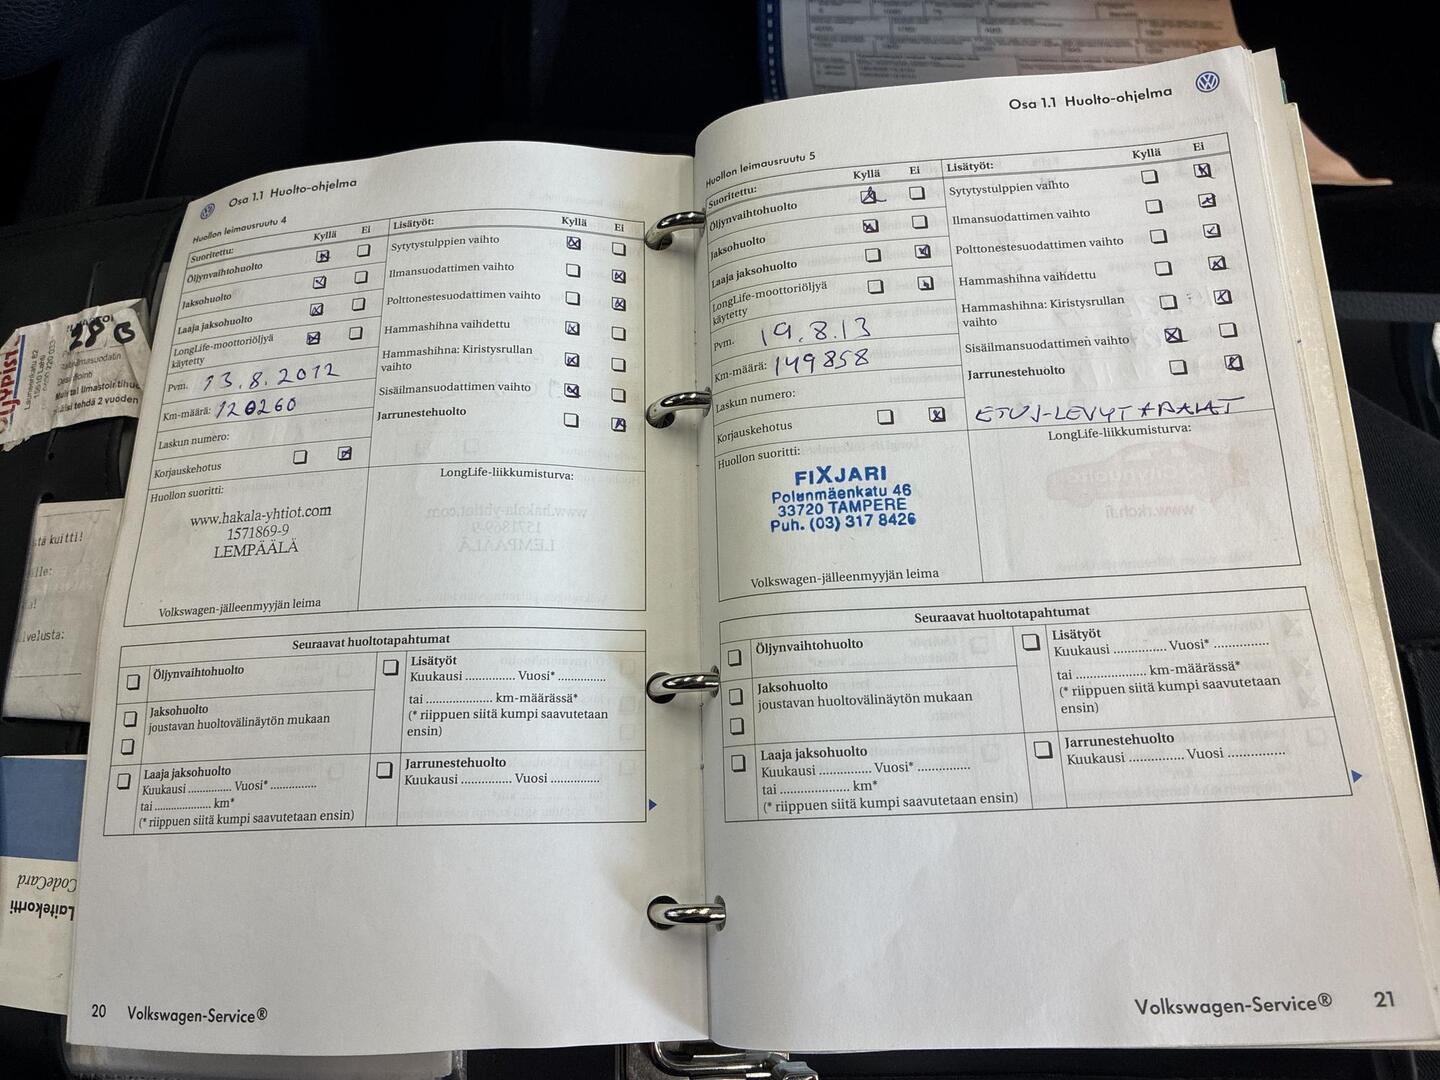 Osa 1.1 Huolto-ohjelma
Huollon leimausruutu 4
Suoritettu: Kyllä Ei
Öljynvaihtohuolto
Jaksohuolto
Laaja jaksohuolto
LongLife-moottoriöljyä
käytetty
Pvm. 13.8.2012
Km-määrä: 120260
Laskun numero:
Korjauskehotus
Lisätyöt: Kyllä Ei
Sytytystulppien vaihto
Ilmansuodattimen vaihto
Polttonestesuodattimen vaihto
Hammashihna vaihdettu
Hammashihna: Kiristysrullan
vaihto
Sisäilmansuodattimen vaihto
Jarrunestehuolto
Huollon suoritti:
www.hakala-yhtiot.com
1571869-9
LEMPÄÄLÄ
Volkswagen-jälleenmyyjän leima
LongLife-liikkumisturva:
Seuraavat huoltotapahtumat
Öljynvaihtohuolto
Jaksohuolto
joustavan huoltovälinäytön mukaan
Laaja jaksohuolto
Kuukausi .............. Vuosi* ...............
tai .................... km*
(* riippuen siitä kumpi saavutetaan ensin)
Lisätyöt
Kuukausi .............. Vuosi* ...............
tai .................... km-määrässä*
(* riippuen siitä kumpi saavutetaan
ensin)
Jarrunestehuolto
Kuukausi .............. Vuosi ...............
20 Volkswagen-Service®
Osa 1.1 Huolto-ohjelma
Huollon leimausruutu 5
Suoritettu: Kyllä Ei
Öljynvaihtohuolto
Jaksohuolto
Laaja jaksohuolto
LongLife-moottoriöljyä
käytetty
Pvm. 19.8.13
Km-määrä: 149858
Laskun numero:
Korjauskehotus
Lisätyöt: Kyllä Ei
Sytytystulppien vaihto
Ilmansuodattimen vaihto
Polttonestesuodattimen vaihto
Hammashihna vaihdettu
Hammashihna: Kiristysrullan
vaihto
Sisäilmansuodattimen vaihto
Jarrunestehuolto
ETUJ-LEVYT + PALAT
Huollon suoritti:
FIXJARI
Polunmäenkatu 46
33720 TAMPERE
Puh. (03) 317 8426
Volkswagen-jälleenmyyjän leima
LongLife-liikkumisturva:
Seuraavat huoltotapahtumat
Öljynvaihtohuolto
Jaksohuolto
joustavan huoltovälinäytön mukaan
Laaja jaksohuolto
Kuukausi .............. Vuosi* ...............
tai .................... km*
(* riippuen siitä kumpi saavutetaan ensin)
Lisätyöt
Kuukausi .............. Vuosi* ...............
tai .................... km-määrässä*
(* riippuen siitä kumpi saavutetaan
ensin)
Jarrunestehuolto
Kuukausi .............. Vuosi ...............
Volkswagen-Service® 21
28 B
CodeCard
Laitekortti